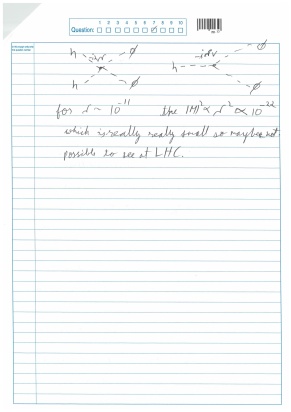 1 2 3 4 5 6 7 8 9 10
Question:
h iλv φ
h φ
iλv φ
h
φ
for λ ~ 10⁻¹¹ the |M|² ∝ λ² ∝ 10⁻²²
which is really really small so maybe not
possible to see at LHC.